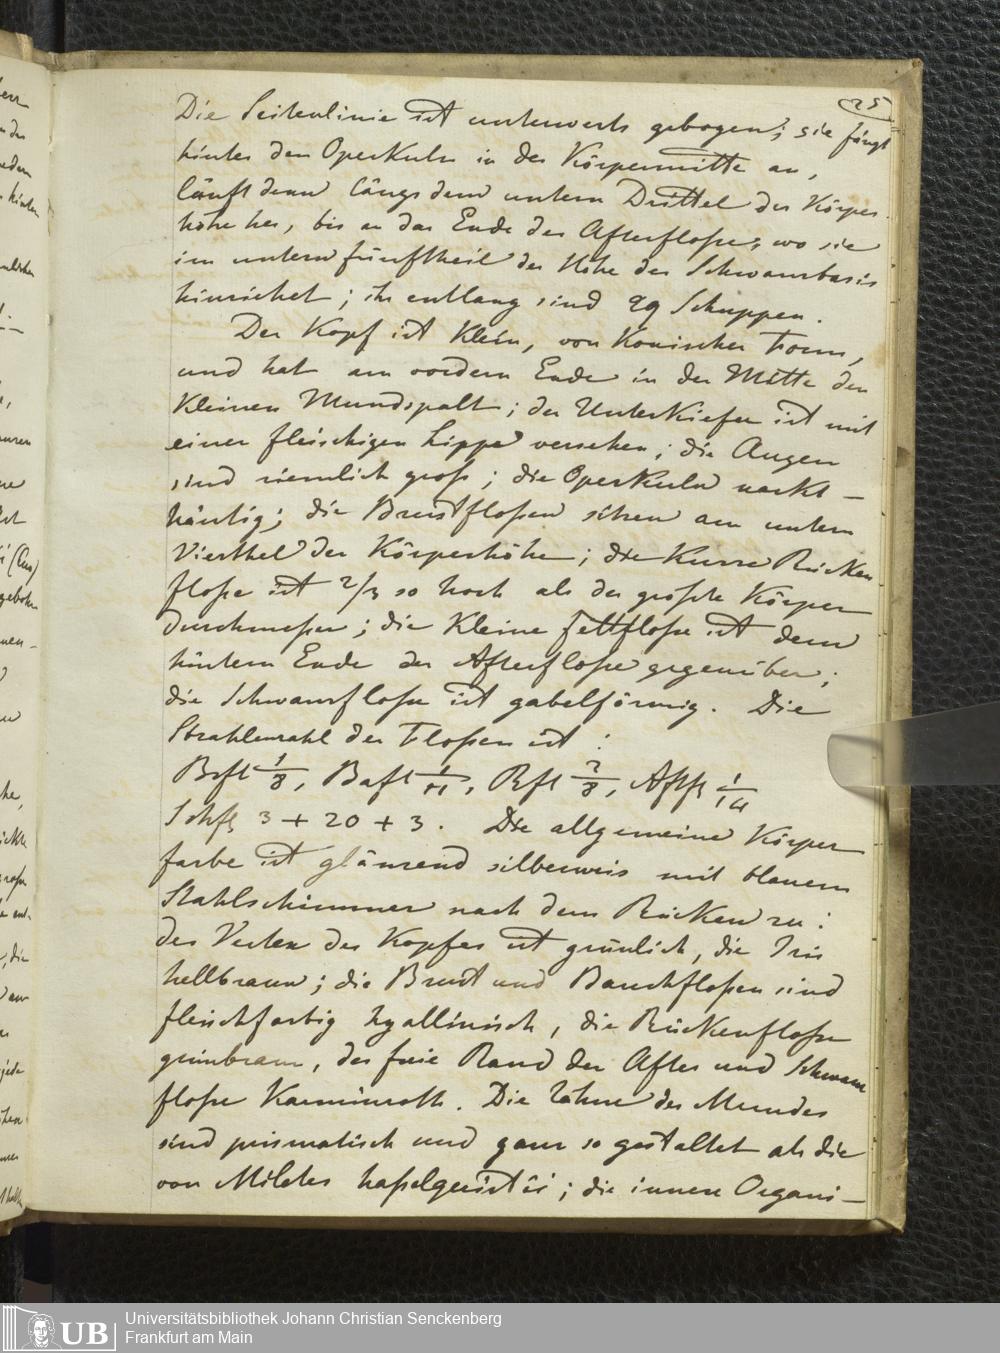 25
Die Seitenlinie ist unterwerts gebogen; sie fängt
hinter den Operkuln in der Körpermitte an,
läuft dann längs dem untern Drittel der Körper
höhe her, bis an das Ende der Afterfloße, wo sie
im untern fünftheil der Höhe der Schwanzbasis
hinziehet; ihr entlang sind 29 Schuppen.
Der Kopf ist Klein, von Konischer Form,
und hat am vordern Ende in der Mitte den
Kleinen Mundspalt; der UnterKiefer ist mit
einer fleischigen Lippe versehen; die Augen
sind ziemlich groß; die Operkuln nackt-
häutig; die Brustfloßen sitzen am untern
Vierthel der Körperhöhe; die Kurze Rücken
floße ist 2/3 so hoch als der größte Körper
durchmeßer; die Kleine Fettfloße ist dem
hintern Ende der Afterfloße gegenüber;
die Schwanzfloße ist gabelförmig. Die
Strahlenzahl der Floßen ist:
Brfl 1/8, Bafl 1/11, Rfl 2/8, Aftfl 1/14
Schfl 3 + 20 + 3. Die allgemeine Körper
farbe ist glänzend silberweis mit blauem
Stahlschimmer nach dem Rücken zu:
der Vertex des Kopfes ist grünlich, die Iris
hellbraun; die Brust und Bauchfloßen sind
fleischfarbig hyallinisch, die Rückenfloße
grünbraun, der freie Rand der After und Schwanz
floße Karminroth. Die Zähne des Mundes
sind prismatisch und ganz so gestaltet als die
von Milctes haßelquistii; die innere Organi-
Universitätsbibliothek Johann Christian Senckenberg
Frankfurt am Main
UB